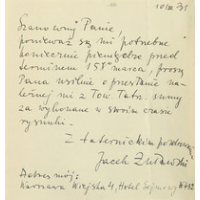 10 III 31
Szanowny Panie,
ponieważ są mi potrzebne
koniecznie pieniądze przed
terminem 15go marca, proszę
Pana usilnie o przesłanie na-
leżnej mi z Tow. Tatrz. sumy
za wykonane w swoim czasie
rysunki.
Z taternickim pozdrowieniem
Jacek Żuławski
Adres mój:
Warszawa Wiejska 4, Hotel Sejmowy